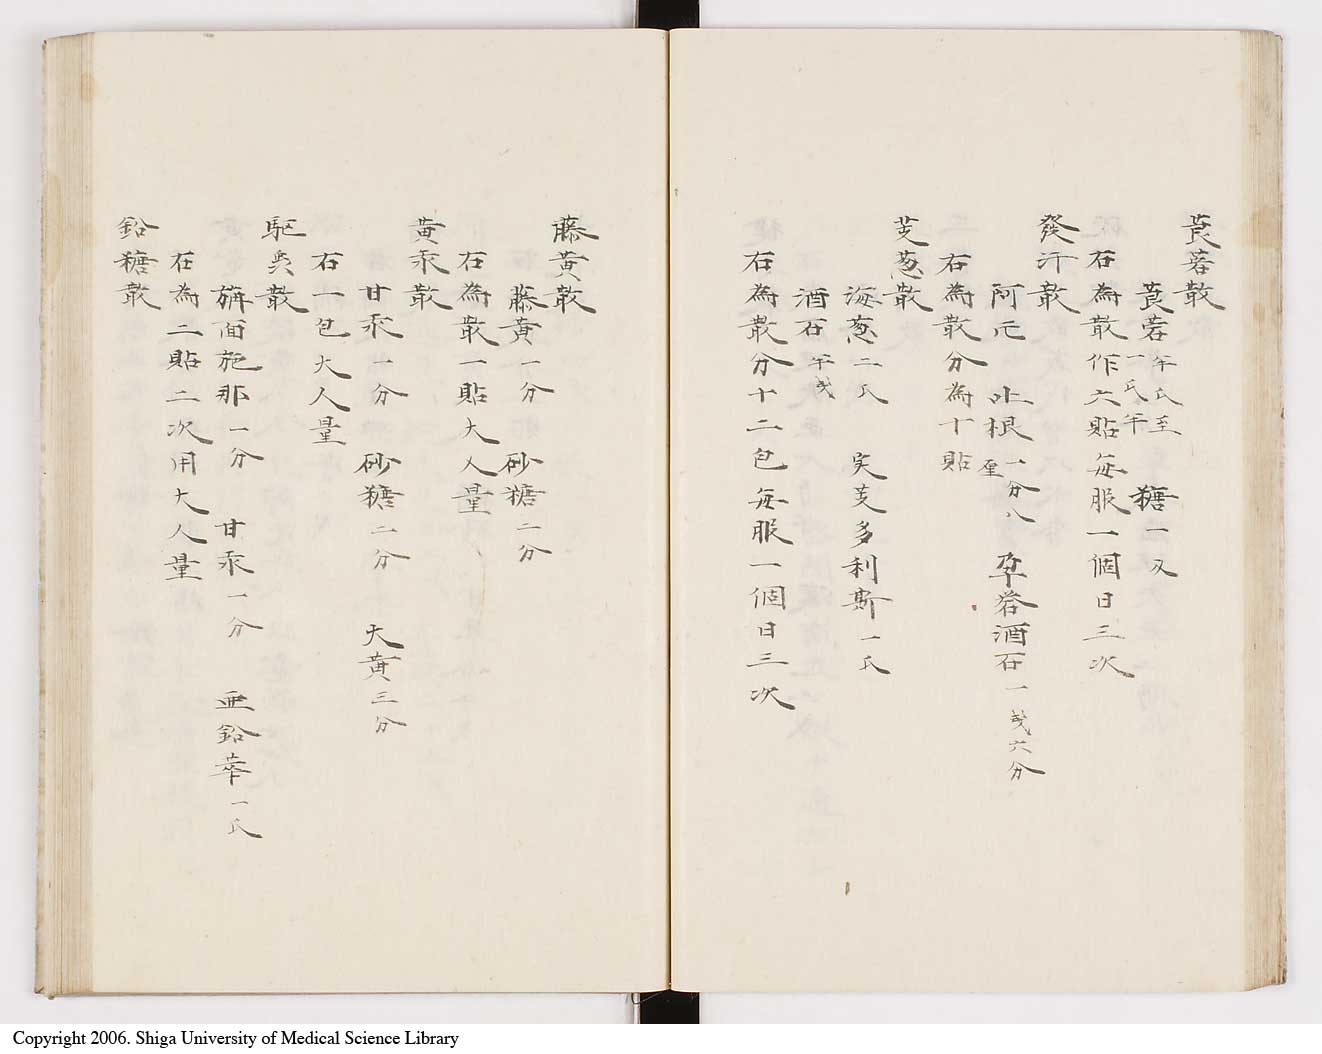 莨菪散
莨菪 半氏至一氏半 糖 一久
右為散作六貼毎服一個日三次
發汗散
阿芫 吐根 各一分八厘 孕礬酒石 一戋六分
右為散分為十貼
芰葱散
海葱 二氏 実芰多利斯 一氏
酒石 半戋
右為散分十二包毎服一個日三次
藤黄散
藤黄 一分 砂糖 二分
右為散一貼大人量
黄汞散
甘汞 一分 砂糖 二分 大黄 三分
右一包大人量
駆虫散
面施那 一分 甘汞 一分 亜鉛華 一氏
右為二貼二次用大人量
鉛糖散
Copyright 2006. Shiga University of Medical Science Library